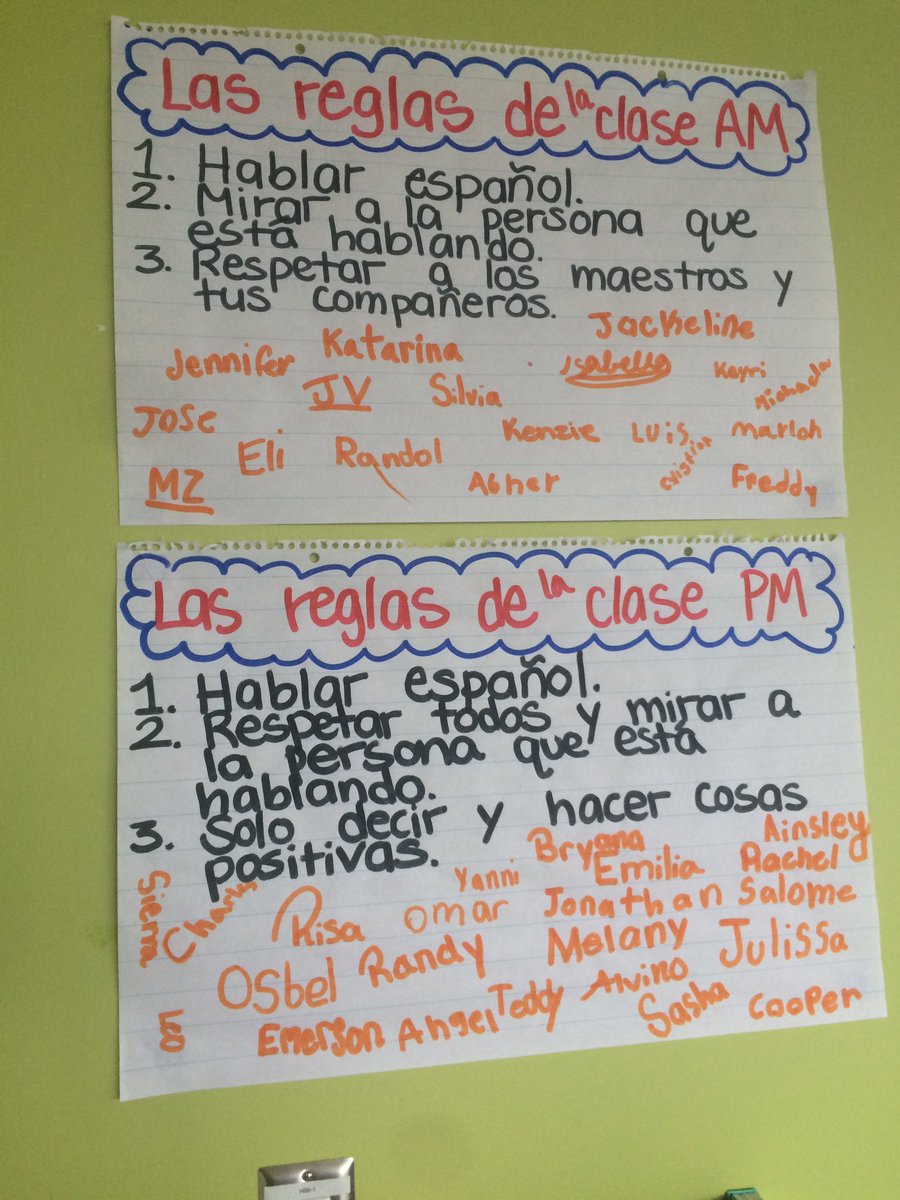 Las reglas de la clase AM
1. Hablar español.
2. Mirar a la persona que
está hablando.
3. Respetar a los maestros y
tus compañeros.
Jackeline
Jennifer Katarina Isabella Keyri
JV Silvia
Jose Kenzie Luis Cristian Marlon
Eli Randol
MZ Abner Freddy
Las reglas de la clase PM
1. Hablar español.
2. Respetar todos y mirar a
la persona que está
hablando.
3. Solo decir y hacer cosas
positivas.
Bryana Ainsley
Sierra Yanni Emilia Rachel
Risa Omar Jonathan Salome
Osbel Randy Melany Julissa
Leo Emerson Angel Teddy Alvino Sasha Cooper